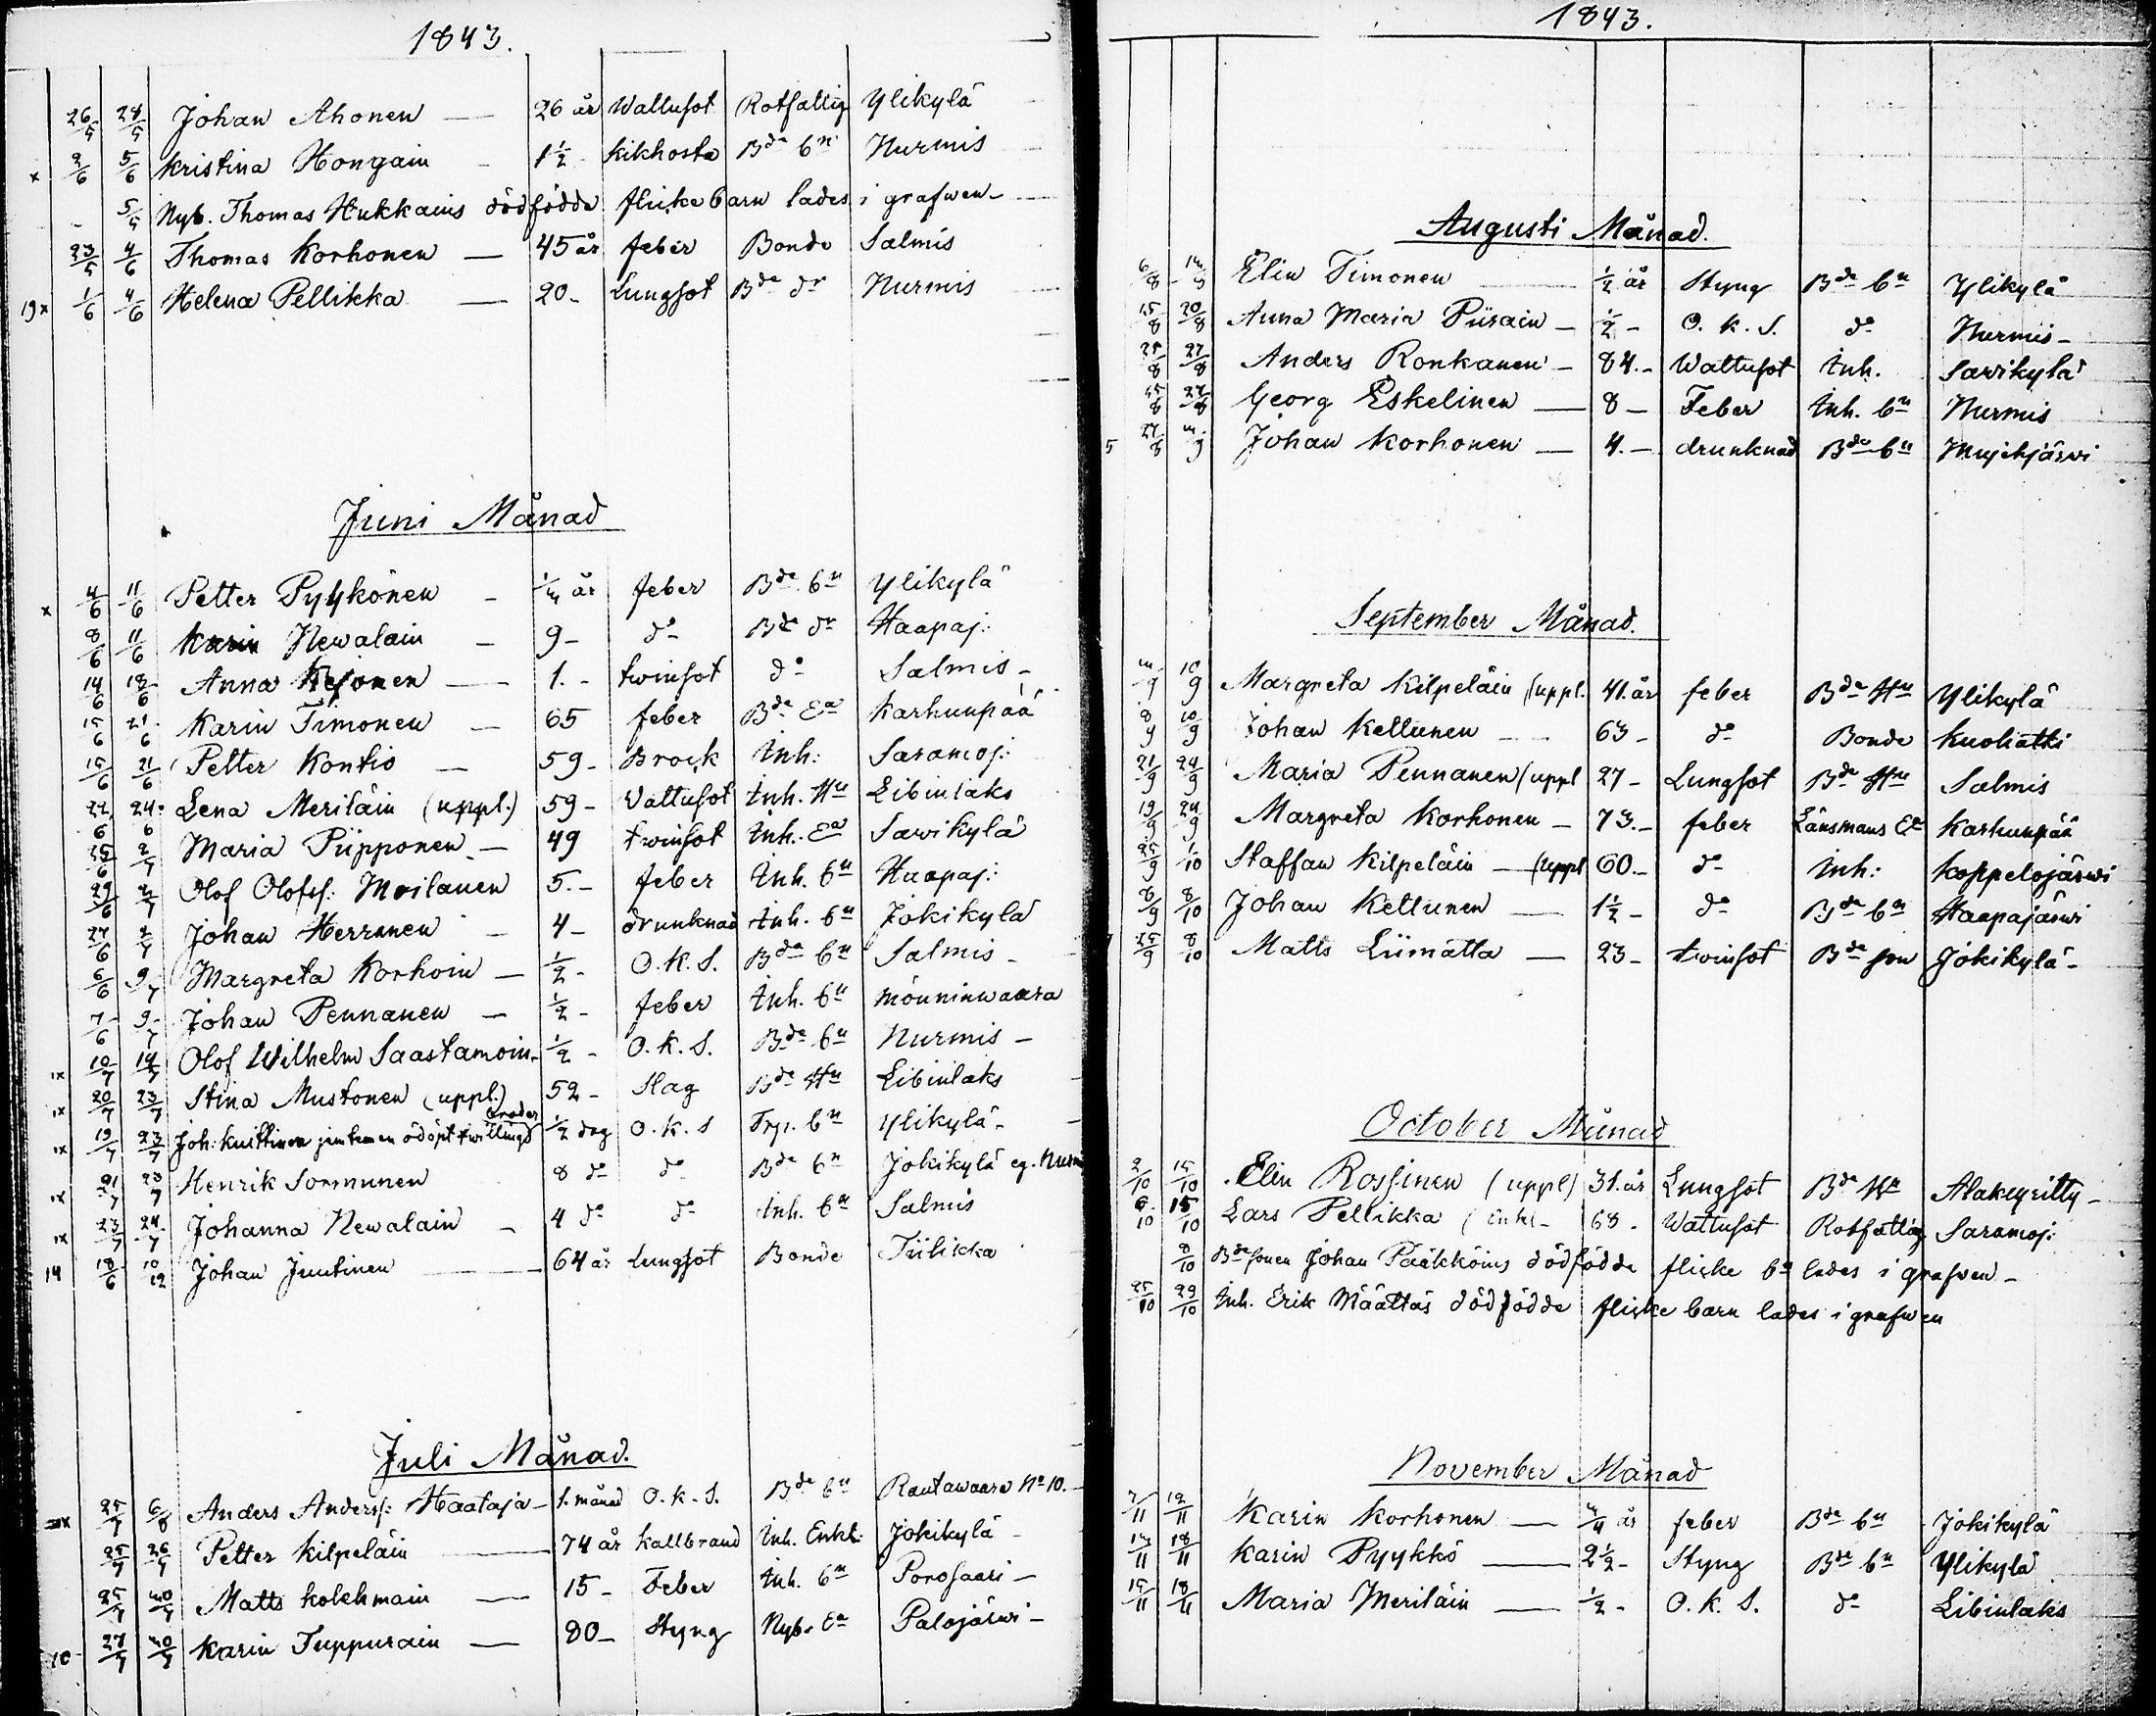 1843.
26/5 28/5 Johan Ahonen — 26 år Wattusot Rotfattig Ylikylä
x 2/6 5/6 Kristina Hongain - 1 1/2 - Kikhosta Bde bn Nurmis
- 5/5 Nyb. Thomas Hukkains dödfödda flicke barn lades i grafwen -
23/5 4/6 Thomas Korhonen — 45 år feber Bonde Salmis
19 x 1/6 4/6 Helena Pellikka — 20 - Lungsot Bde dr Nurmis
Juni Månad
x 4/6 11/6 Petter Pyykönen - år feber Bde bn Ylikylä
8/6 11/6 Karin Newalain - 9 - do Bde dr Haapaj:
14/6 18/6 Anna Kejonen — 1. - twinsot do Salmis -
15/6 21/6 Karin Timonen — 65 feber Bde Ea Karhunpää
15/6 21/6 Petter Kontio — 59 - Brock Inh: Saramoj:
22/6 24/6 Lena Meriläin (uppl.) 59 - Vattusot Inh. Hu Libinlaks
25/6 2/7 Maria Piipponen - 49 twinsot Inh. Ea Sawikylä
29/6 2/7 Olof Olofss: Moilanen 5. - feber Inh. bn Haapaj:
27/6 2/7 Johan Herranen - 4 - drunknad Inh. bn Jokikylä
6/6 9/7 Margreta Korhoin — 1/2 - O. K. S. Bde bn Salmis -
7/6 9/7 Johan Pennanen — 1/2 - feber Inh. bn Mönninwaara
1x 10/7 14/7 Olof Wilhelm Saastamoin - 1/2 - O. K. S. Bde bn Nurmis -
1x 20/7 23/7 Stina Mustonen (uppl.) 52 - Slag Bde Hu Libinlaks
1x 19/7 23/7 Joh: Kuittinen jemte en odöpt twillings broder 1/2 dag O. K. S Trp. bn Ylikylä -
1x 21/7 23/7 Henrik Sormunen 8 do do Bde bn Jokikylä eg.
1x 23/7 24/7 Johanna Newalain - 4 do do Inh. bn Salmis
14 18/6 10/12 Johan Juutinen — 64 år Lungsot Bonde Tiilikka
Juli Månad.
25/7 6/8 Anders Anderss: Haataja - 1. månad O. K. S. Bde bn Rautawaara No 10. -
25/7 26/7 Petter Kilpeläin — 74 år Kallbrand Inh. Enkl: Jokikylä -
25/7 30/7 Matts Kolehmain — 15 - Feber Inh. bn Porosaari -
10 27/7 30/7 Karin Tuppurain — 80 - Styng Nyb. Ea Palojärwi -
1843.
Augusti Månad.
6/8 Elin Timonen 1/2 år Styng Bde bn Ylikylä
15/8 20/8 Anna Maria Piirain - 1/2 - O. K. S. do Nurmis -
27/8 Anders Ronkanen - 84. - Wattusot Inh. Sawikylä
25/8 27/8 Georg Eskelinen — 8 - Feber Inh. bn Nurmis
5 27/8 3/9 Johan Korhonen — 4. - drunknad Bde bn Mujehjärwi
September Månad.
3/9 10/9 Margreta Kilpeläin (uppl. 41. år feber Bde Hu Ylikylä
8/9 10/9 Johan Kettunen — 63 - do Bonde Kuohatti
21/9 24/9 Maria Pennanen (uppl 27 - Lungsot Bde Hu Salmis
19/9 24/9 Margreta Korhonen - 73. - feber Länsmans Ea Karhunpää
25/9 1/10 Staffan Kilpeläin — (uppl 60. - do Inh: Koppelojärwi
8/9 8/10 Johan Kettunen — 1 1/2 - do Bde bn Haapajärwi
7 25/9 8/10 Matts Liimatta — 23 - twinsot Bde son Jokikylä -
October Månad
2/10 15/10 Elin Rossinen (uppl) 31. år Lungsot Bde Hu Alakeyritty -
6/10 15/10 Lars Pellikka (Enkl - 68 - Wattusot Rotfattig Saramoj:
8/10 Bdesonen Johan Pääkköins dödfödda flicke bn lades i grafwen -
25/10 29/10 Inh. Erik Määttäs dödfödde flicke barn lades i grafwen
November Månad
7/11 12/11 Karin Korhonen — 3/4 år feber Bde bn Jokikylä
13/11 18/11 Karin Pyykkö — 2 1/2 - Styng Bde bn Ylikylä
15/11 18/11 Maria Meriläin — 1/2 - O. K. S. do Libinlaks